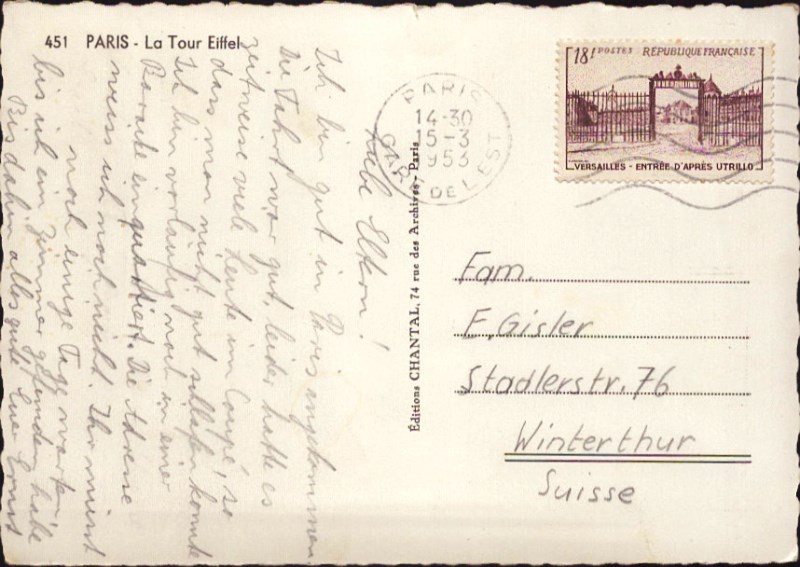 451 PARIS - La Tour Eiffel
Liebe Eltern!
Ich bin gut in Paris angekommen.
Die Fahrt war gut, leider hatte es
zeitweise viele Leute im Coupé, so
dass man nicht gut schlafen konnte
Ich bin vorläufig noch in einer
Baracke einquartiert. Die Adresse
weiss ich noch nicht. Ihr müsst
noch einige Tage warten,
bis ich ein Zimmer gefunden habe
Bis dahin alles gute Euer Ernst
Éditions CHANTAL, 74 rue des Archives - Paris
PARIS
14-30
15-3
1953
GARE DE L'EST
18f POSTES RÉPUBLIQUE FRANÇAISE
VERSAILLES - ENTRÉE D'APRÈS UTRILLO
Fam.
E. Gisler
Stadlerstr. 76
Winterthur
Suisse